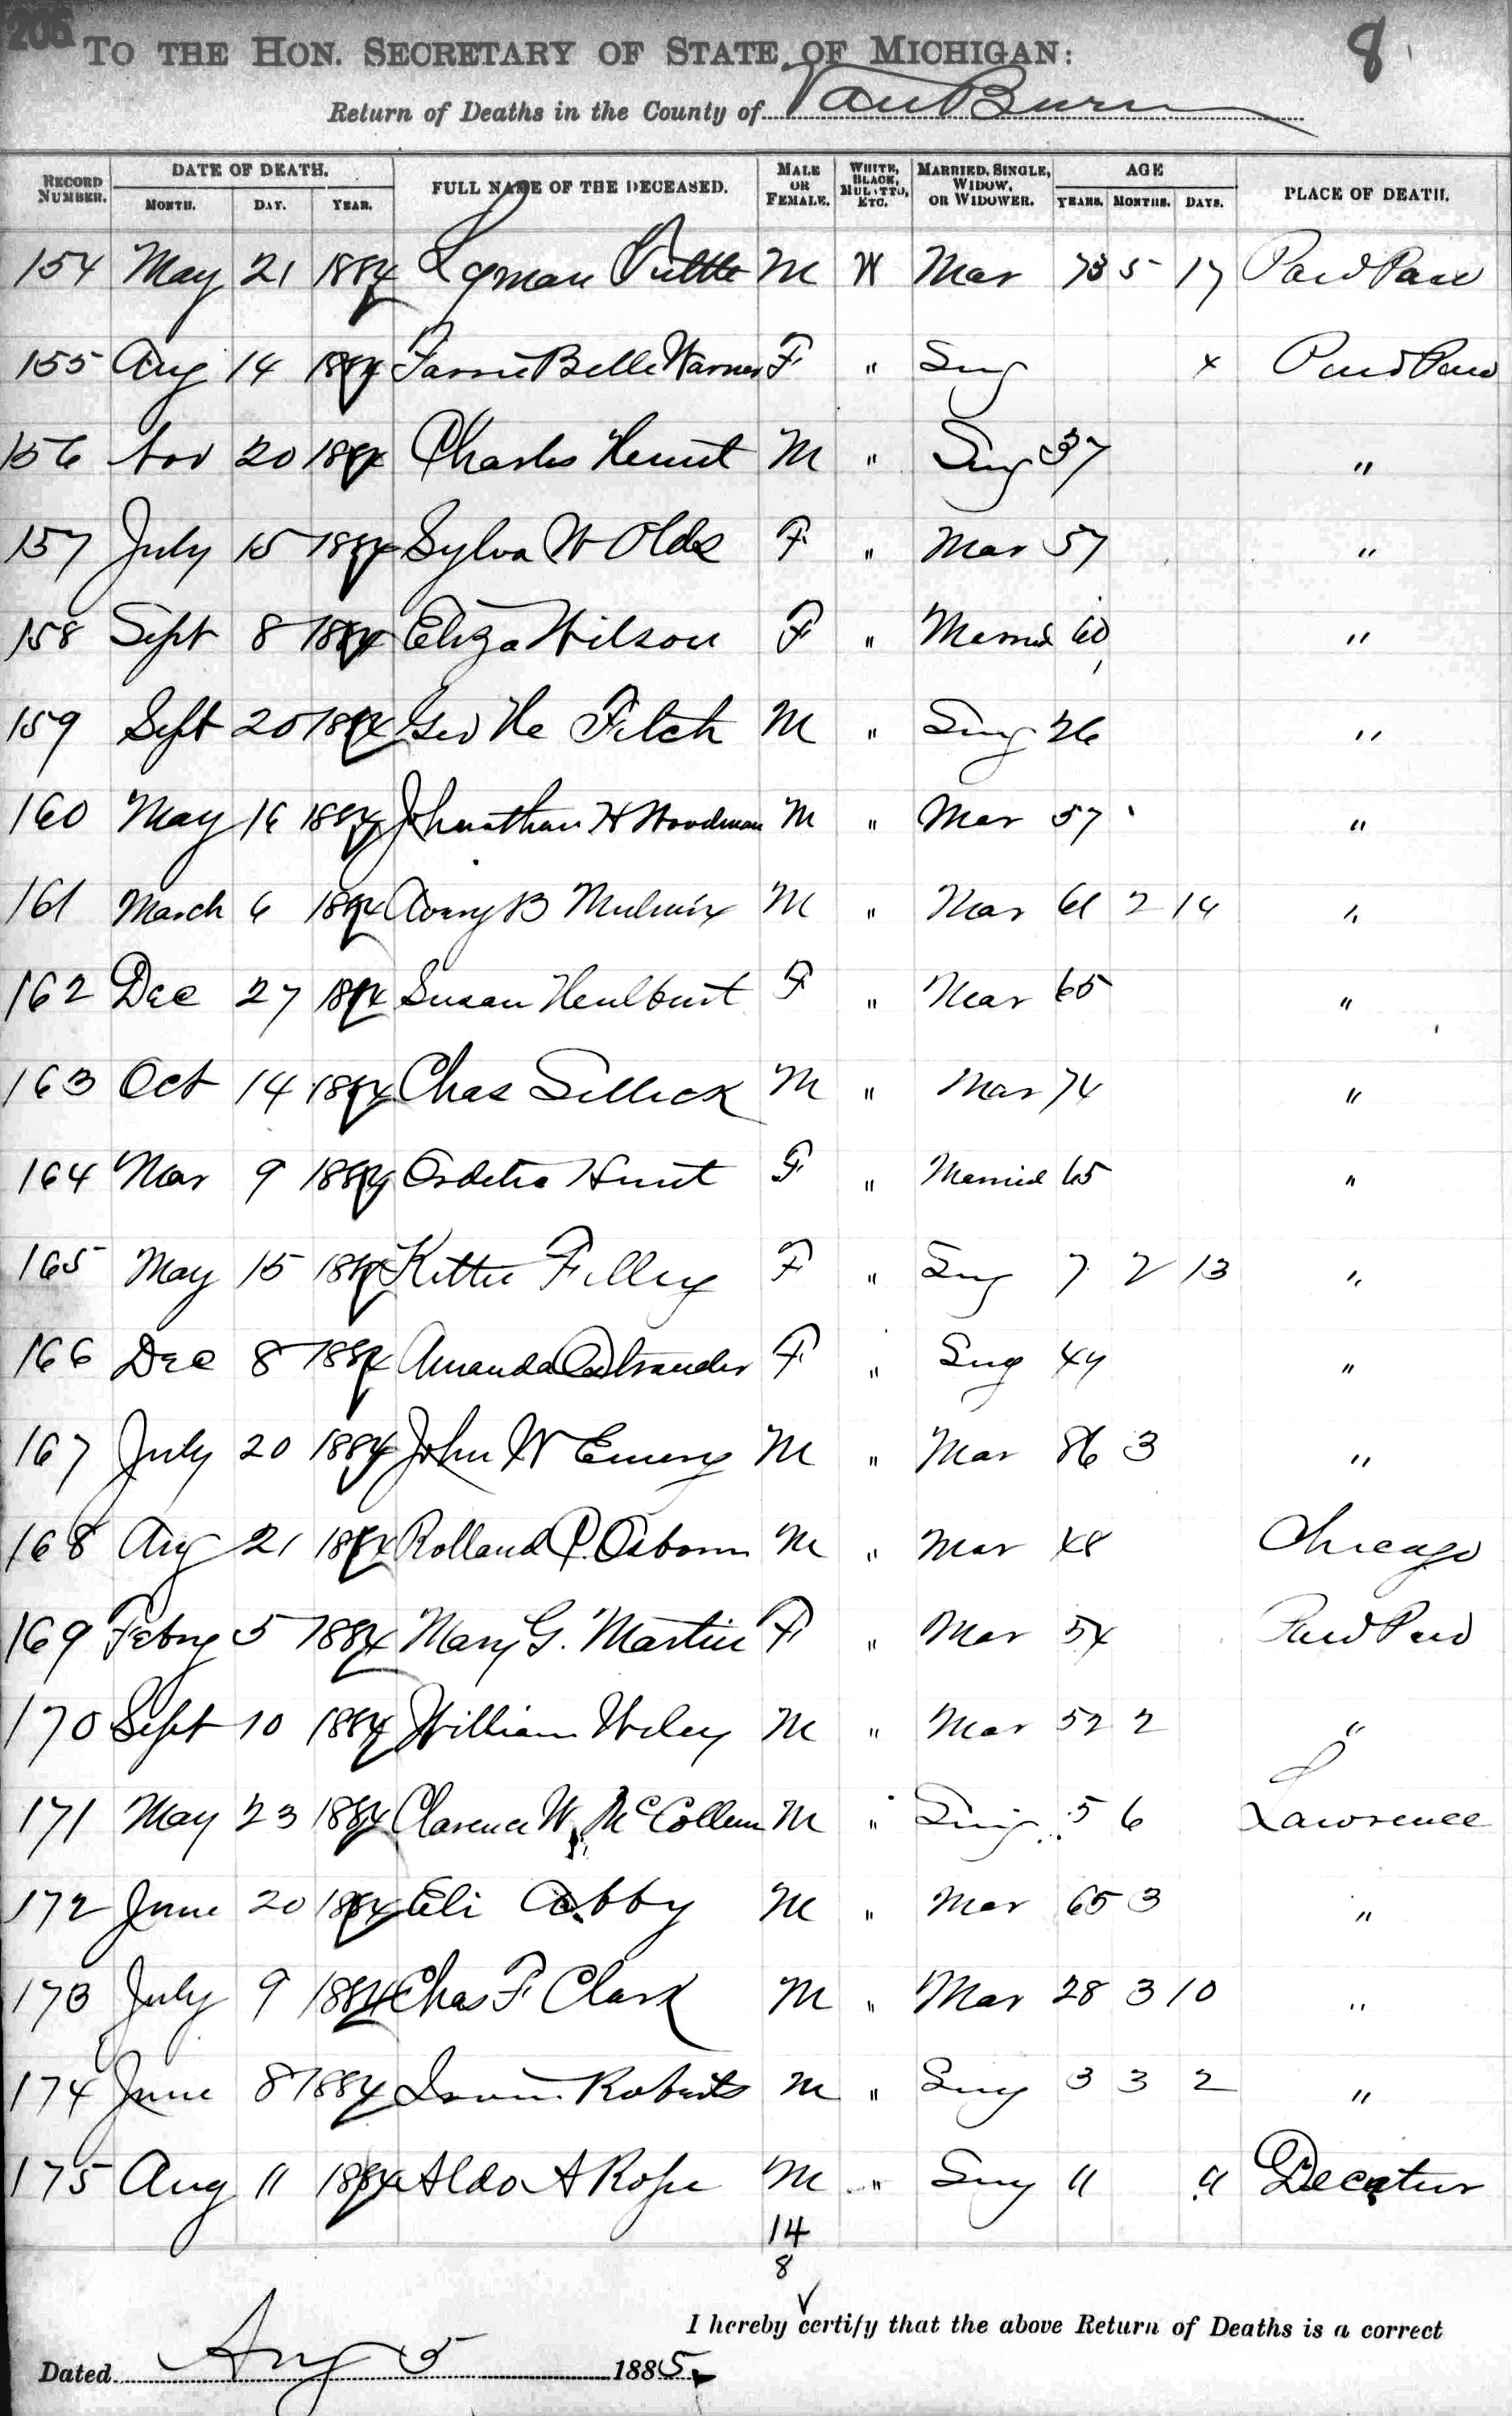 205
TO THE HON. SECRETARY OF STATE OF MICHIGAN: 8
Return of Deaths in the County of Van Buren
RECORD NUMBER. DATE OF DEATH. MONTH. DAY. YEAR. FULL NAME OF THE DECEASED. MALE OR FEMALE. WHITE, BLACK, MULATTO, ETC. MARRIED, SINGLE, WIDOW, OR WIDOWER. AGE YEARS. MONTHS. DAYS. PLACE OF DEATH.
154 May 21 1884 Lyman Tuttle M W Mar 73 5 17 Paw Paw
155 Aug 14 1884 Belle Warner F " Sing x Paw Paw
156 Nov 20 1884 Charles M " Sing 37 "
157 July 15 1884 Sylva W Olds F " Mar 57 "
158 Sept 8 1884 Eliza Wilson F " Married 60 "
159 Sept 20 1884 Geo Fitch M " Sing 26 "
160 May 16 1884 Johnathan H Woodman M " Mar 57 "
161 March 6 1884 Avery B M " Mar 61 2 14 "
162 Dec 27 1884 Susan Hulburt F " Mar 65 "
163 Oct 14 1884 Chas Sellick M " Mar 74 "
164 Mar 9 1884 Hunt F " Married 65 "
165 May 15 1884 Kittie Filley F " Sing 7 2 13 "
166 Dec 8 1884 Amanda Ostrander F " Sing 44 "
167 July 20 1884 John W Emery M " Mar 86 3 "
168 Aug 21 1884 Rolland C. Osborn M " Mar 48 Chicago
169 Febry 5 1884 Mary G. Martin F " Mar 54 Paw Paw
170 Sept 10 1884 William Wiley M " Mar 52 2 "
171 May 23 1884 Clarence W. McCollum M " Sing 5 6 Lawrence
172 June 20 1884 Eli Abby M " Mar 65 3 "
173 July 9 1884 Chas F Clark M " Mar 28 3 10 "
174 June 8 1884 Roberts M " Sing 3 3 2 "
175 Aug 11 1884 Aldo A Rose M " Sing 11 Decatur
14
8
I hereby certify that the above Return of Deaths is a correct
Dated Aug 5 1885